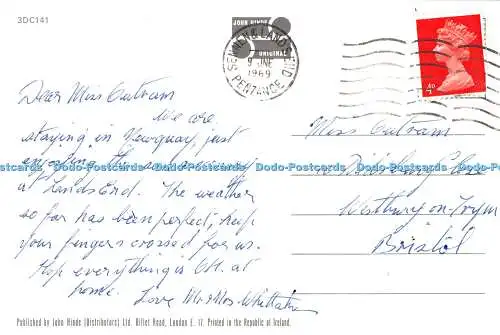 3DC141
JOHN HINDE
ORIGINAL
SENNEN & LANDS END
9 JNE
1969
PENZANCE
4D
Dear Miss Outram
We are
staying in Newquay, just
enjoying the
at Lands End. The weather
so far has been perfect, keep
your fingers crossed for us.
Hop everything is O.K. at
home. Love Mr & Mrs Whittaker
Miss Outram
Westbury-on-Trym
Bristol
Dodo-Postcards Dodo-Postcards Dodo-Postcards Dodo-Postcards Dodo-Postcards Dodo-Postcards
Published by John Hinde (Distributors) Ltd. Billet Road, London E. 17. Printed in the Republic of Ireland.